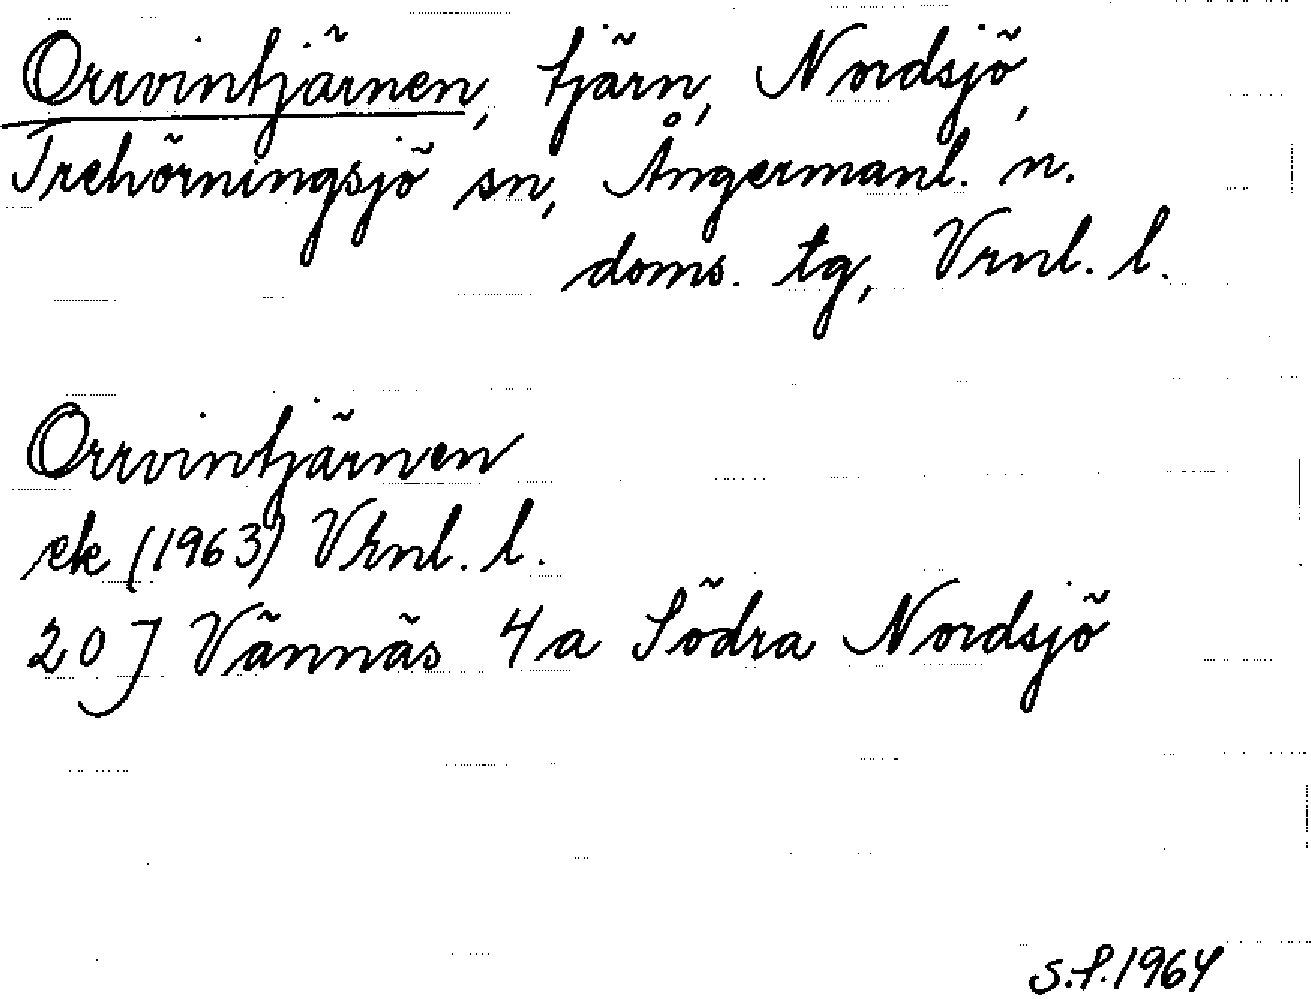 Orrvintjärnen, tjärn, Nordsjö,
Trehörningsjö sn, Ångermanl. n.
doms. tg, Vrnl. l.
Orrvintjärnen
ek (1963) Vrnl. l.
20 J Vännäs 4a Södra Nordsjö
S.f. 1964